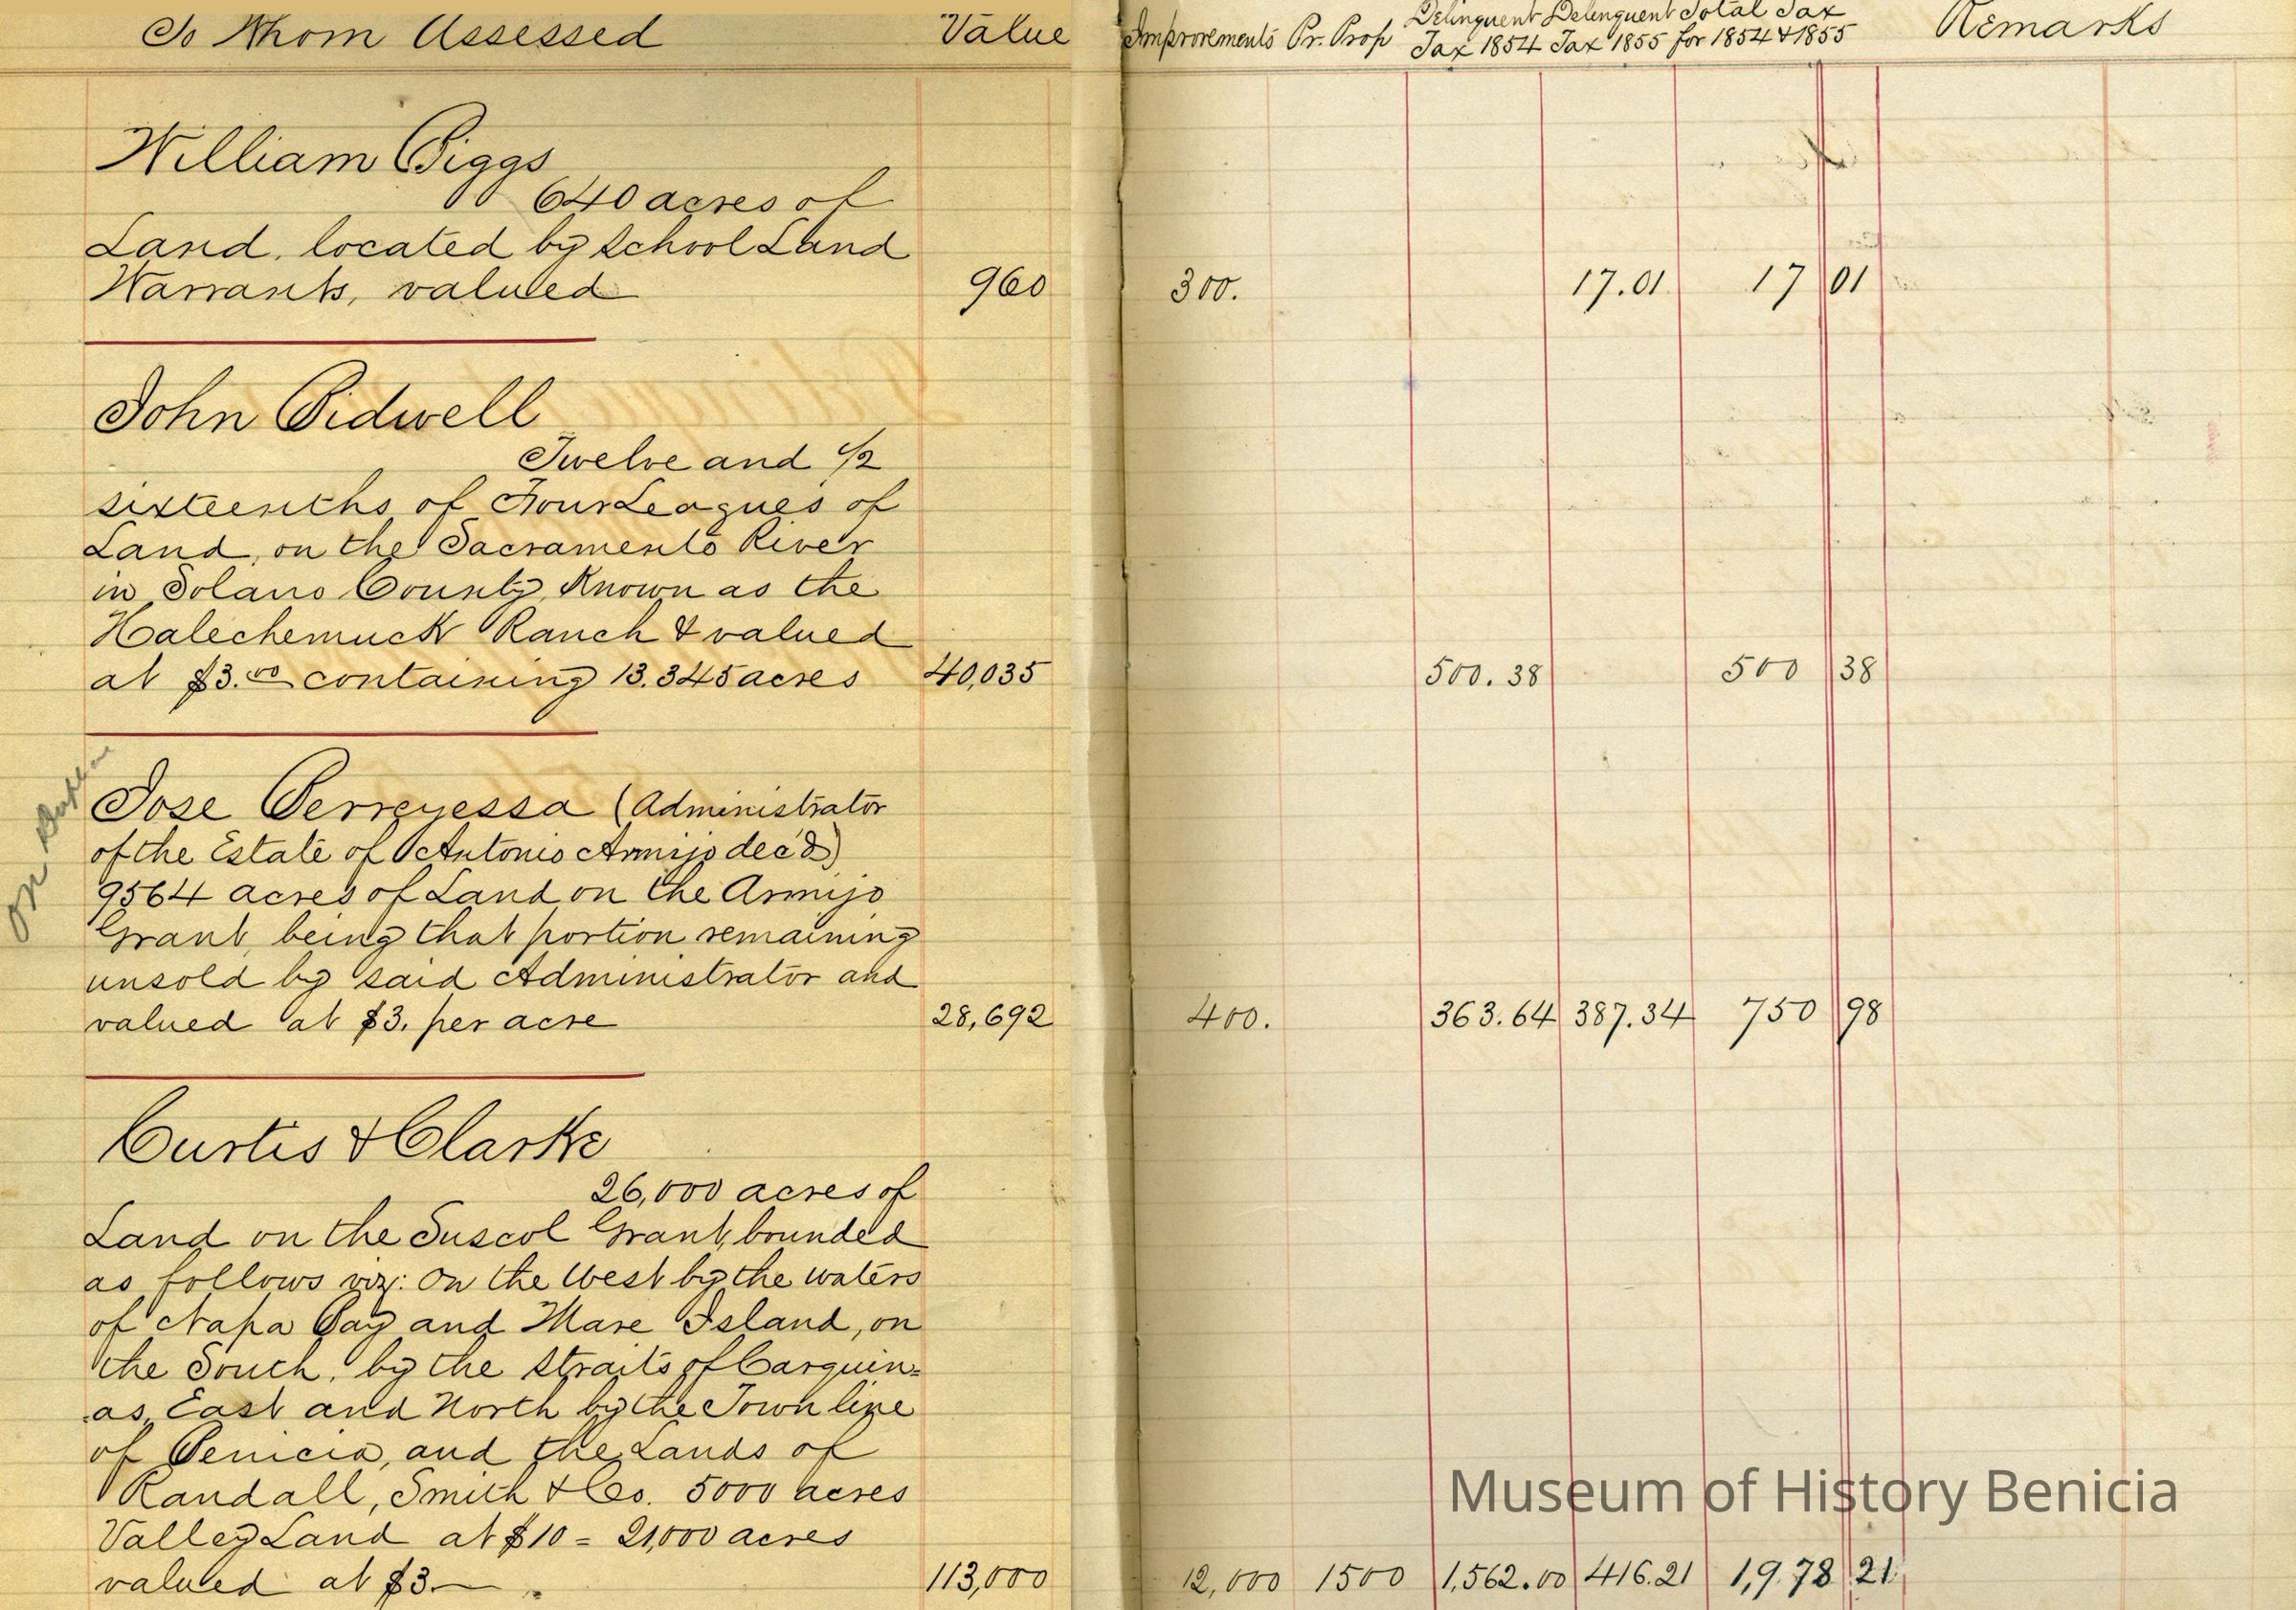 To Whom Assessed Value Improvements Pr. Prop Delinquent Tax 1854 Delenquent Tax 1855 Total Tax for 1854 & 1855 Remarks
William Biggs
640 acres of
Land, located by School Land
Warrants, valued 960 300. 17.01 17 01
John Bidwell
Twelve and 1/2
sixteenths of Four Leagues of
Land, on the Sacramento River
in Solano County, Known as the
Halechemuck Ranch & valued
at $3.00 containing 13.345 acres 40,035 500.38 500 38
Jose Berreyessa (Administrator
of the Estate of Antonio Armijo dec'd)
9564 acres of Land on the Armijo
Grant, being that portion remaining
unsold by said Administrator and
valued at $3. per acre 28,692 400. 363.64 387.34 750 98
on
Curtis & Clarke
26,000 acres of
Land on the Suscol Grant, bounded
as follows viz: On the West by the waters
of Napa Bay and Mare Island, on
the South, by the Straits of Carquin=
as, East and North by the Town line
of Benicia, and the Lands of
Randall, Smith & Co. 5000 acres
Valley Land at $10 = 21,000 acres
valued at $3— 113,000 12,000 1500 1,562.00 416.21 1,978 21
Museum of History Benicia